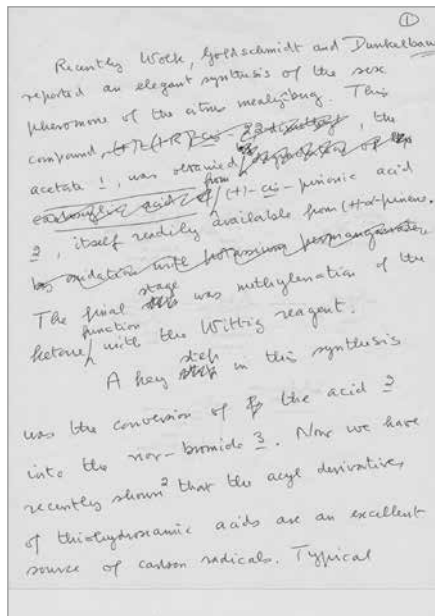 ①
Recently Wolk, Goldschmidt and Dunkelblum
reported an elegant synthesis of the sex
pheromone of the citrus mealybug. This
compound, (+)-(1R)-cis-, the
acetate 1, was obtained
from
acid (+)-cis-pinonic acid
2, itself readily available from (+)-α-pinene.
by oxidation with potassium permanganate.
stage
The final was methylenation of the
function
ketone with the Wittig reagent.
step
A key in this synthesis
was the conversion of the acid 2
into the nor-bromide 3. Now we have
recently shown² that the acyl derivatives
of thiohydroxamic acids are an excellent
source of carbon radicals. Typical